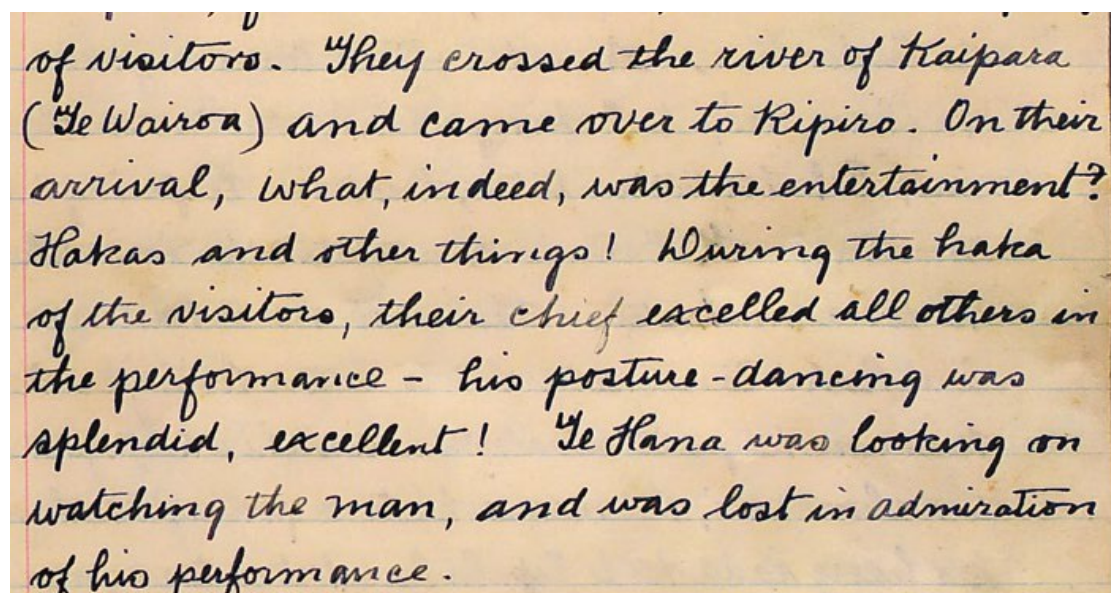 of visitors. They crossed the river of Kaipara
(Te Wairoa) and came over to Ripiro. On their
arrival, what, indeed, was the entertainment?
Hakas and other things! During the haka
of the visitors, their chief excelled all others in
the performance - his posture-dancing was
splendid, excellent! Te Hana was looking on
watching the man, and was lost in admiration
of his performance.